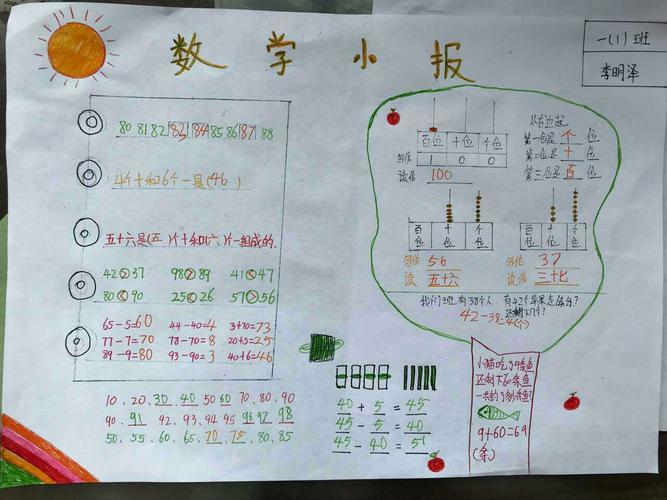 数学小报
一(1)班
李明泽
80 81 82 83 84 85 86 87 88
4个十和6个一是(46)
五十六是(五)个十和(六)个一组成的.
42>37 98>89 41<47
80<90 25<26 57>56
65-5=60 44-40=4 3+70=73
77-7=70 78-70=8 20+5=25
89-9=80 93-90=3 40+6=46
10、20、30 40 50 60 70、80、90
90、91 92、93、94、95 96 97 98
50、55、60、65、70、75、80、85
百位 十位 个位
写作 1 0 0
读作 100
从右边起
第一位是个位
第二位是十位
第三位是百位
百位 十位 个位
写作 56
读 五十六
百位 十位 个位
写作 37
读作 三十七
我们班有38个人,有42个苹果
42-38=4(个)
40+5=45
45-5=40
45-40=5
小猫吃了9条鱼
还剩下60条鱼
9+60=69
(条)